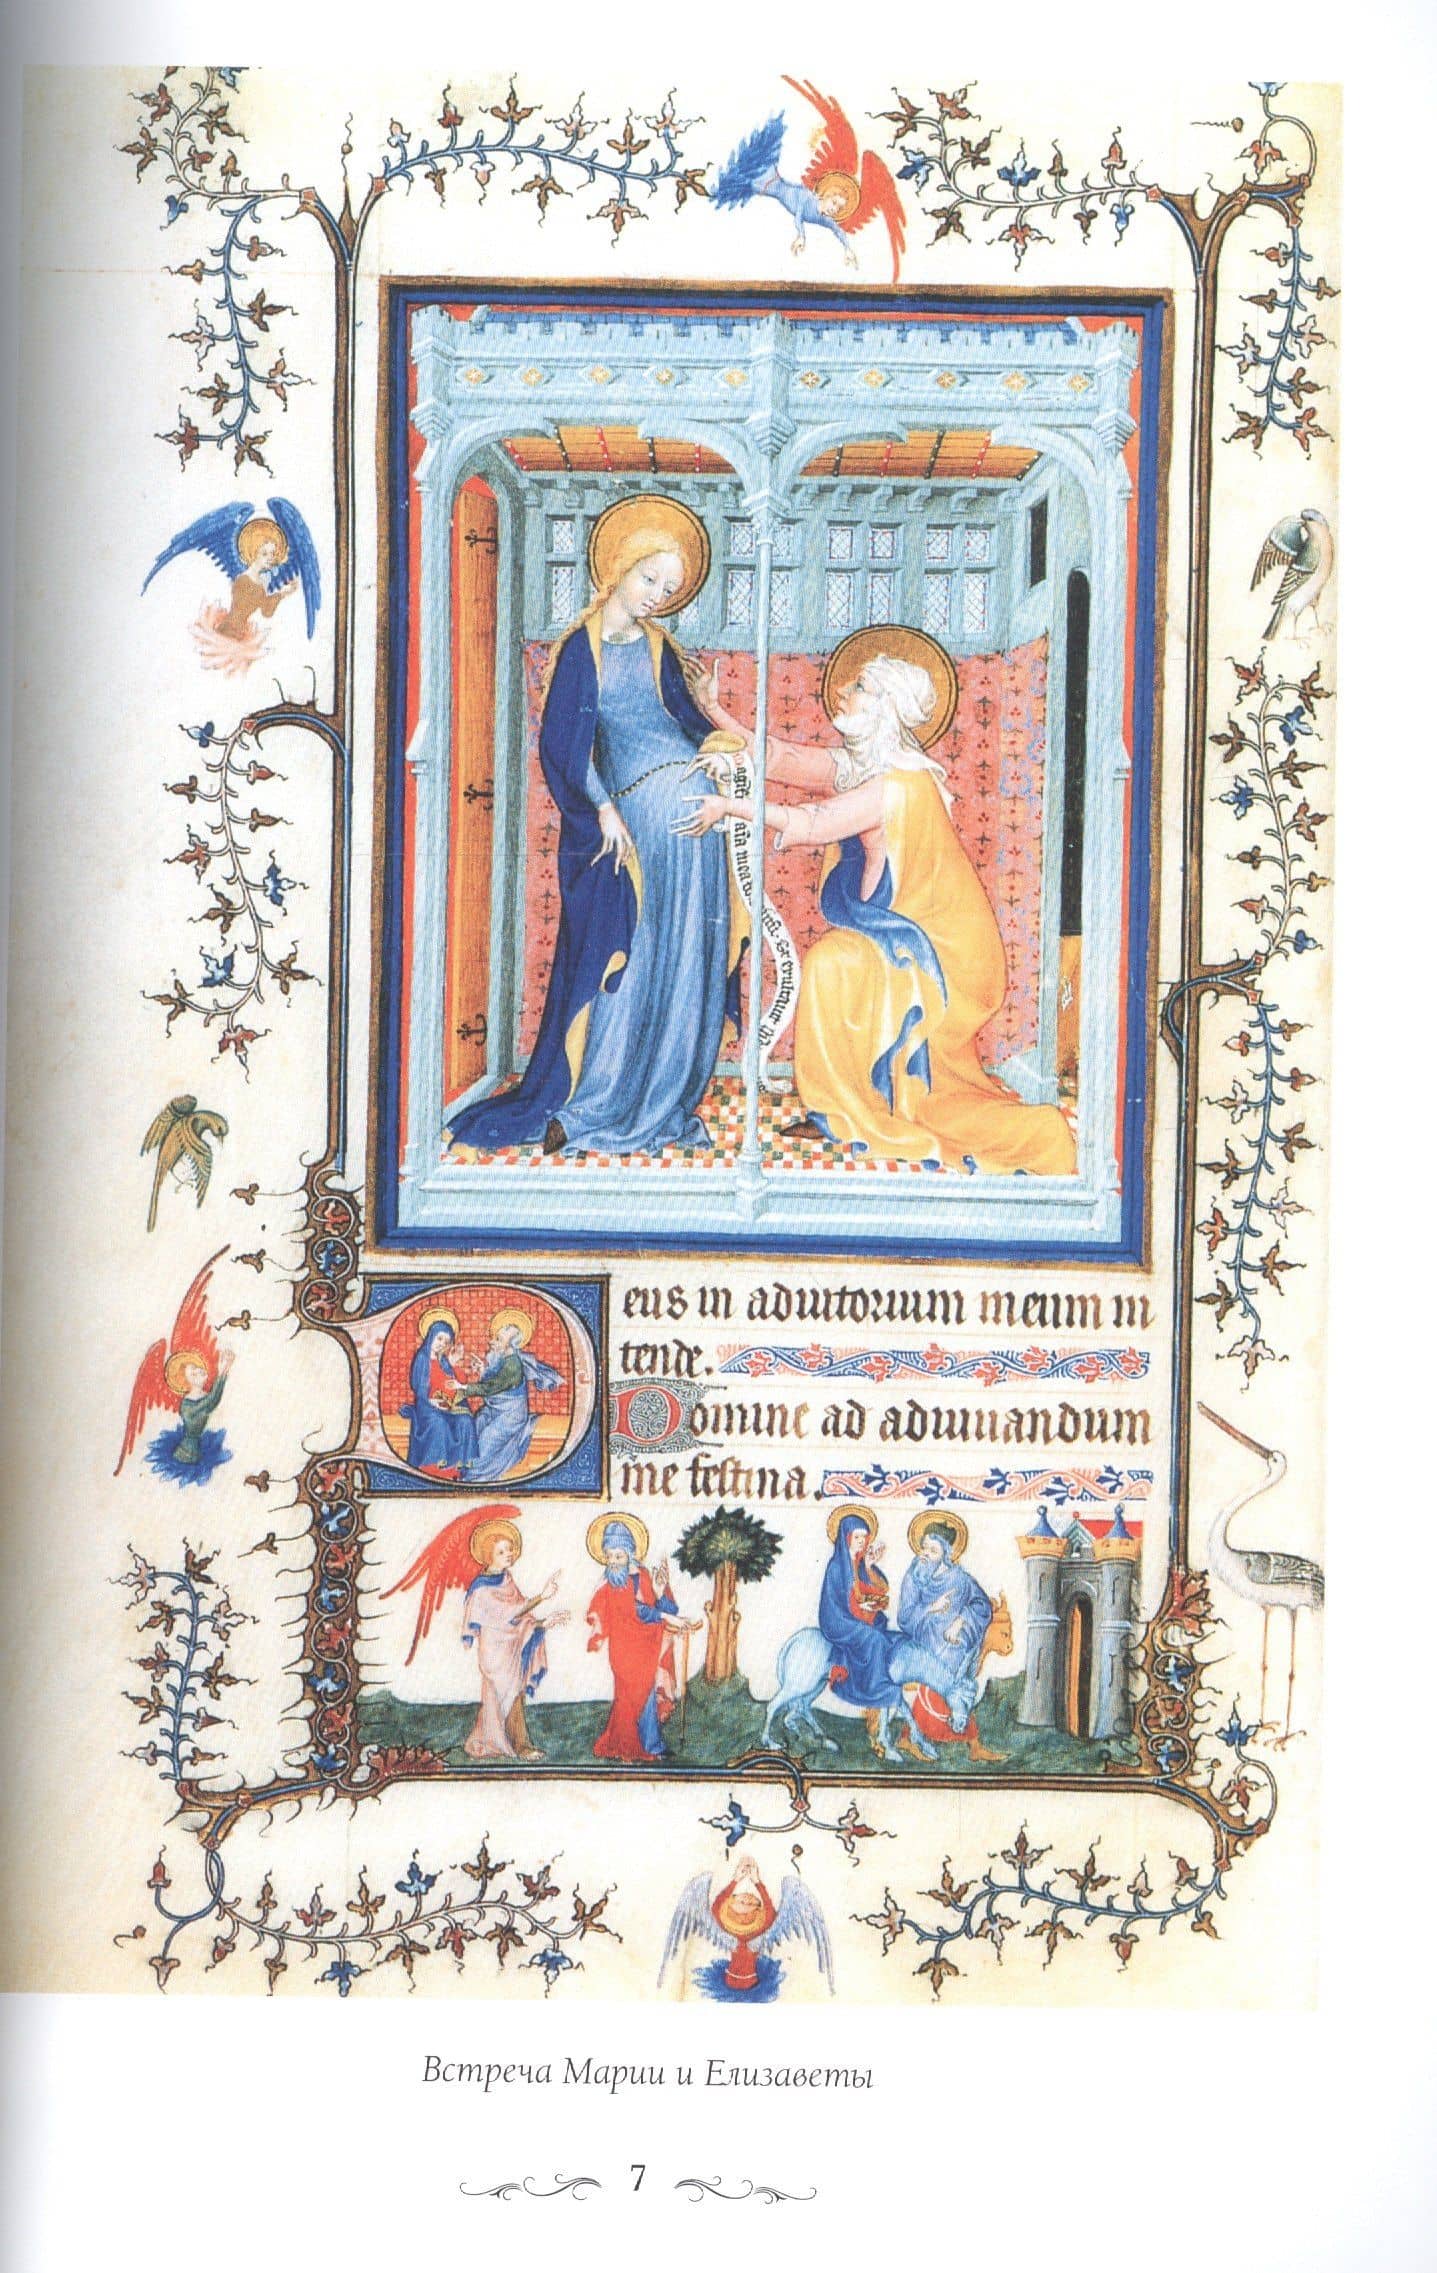 aīa mea
exultauit
Deus in adiutorium meum in
tende.
Domine ad adiuuandum
me festina.
Встреча Марии и Елизаветы
7